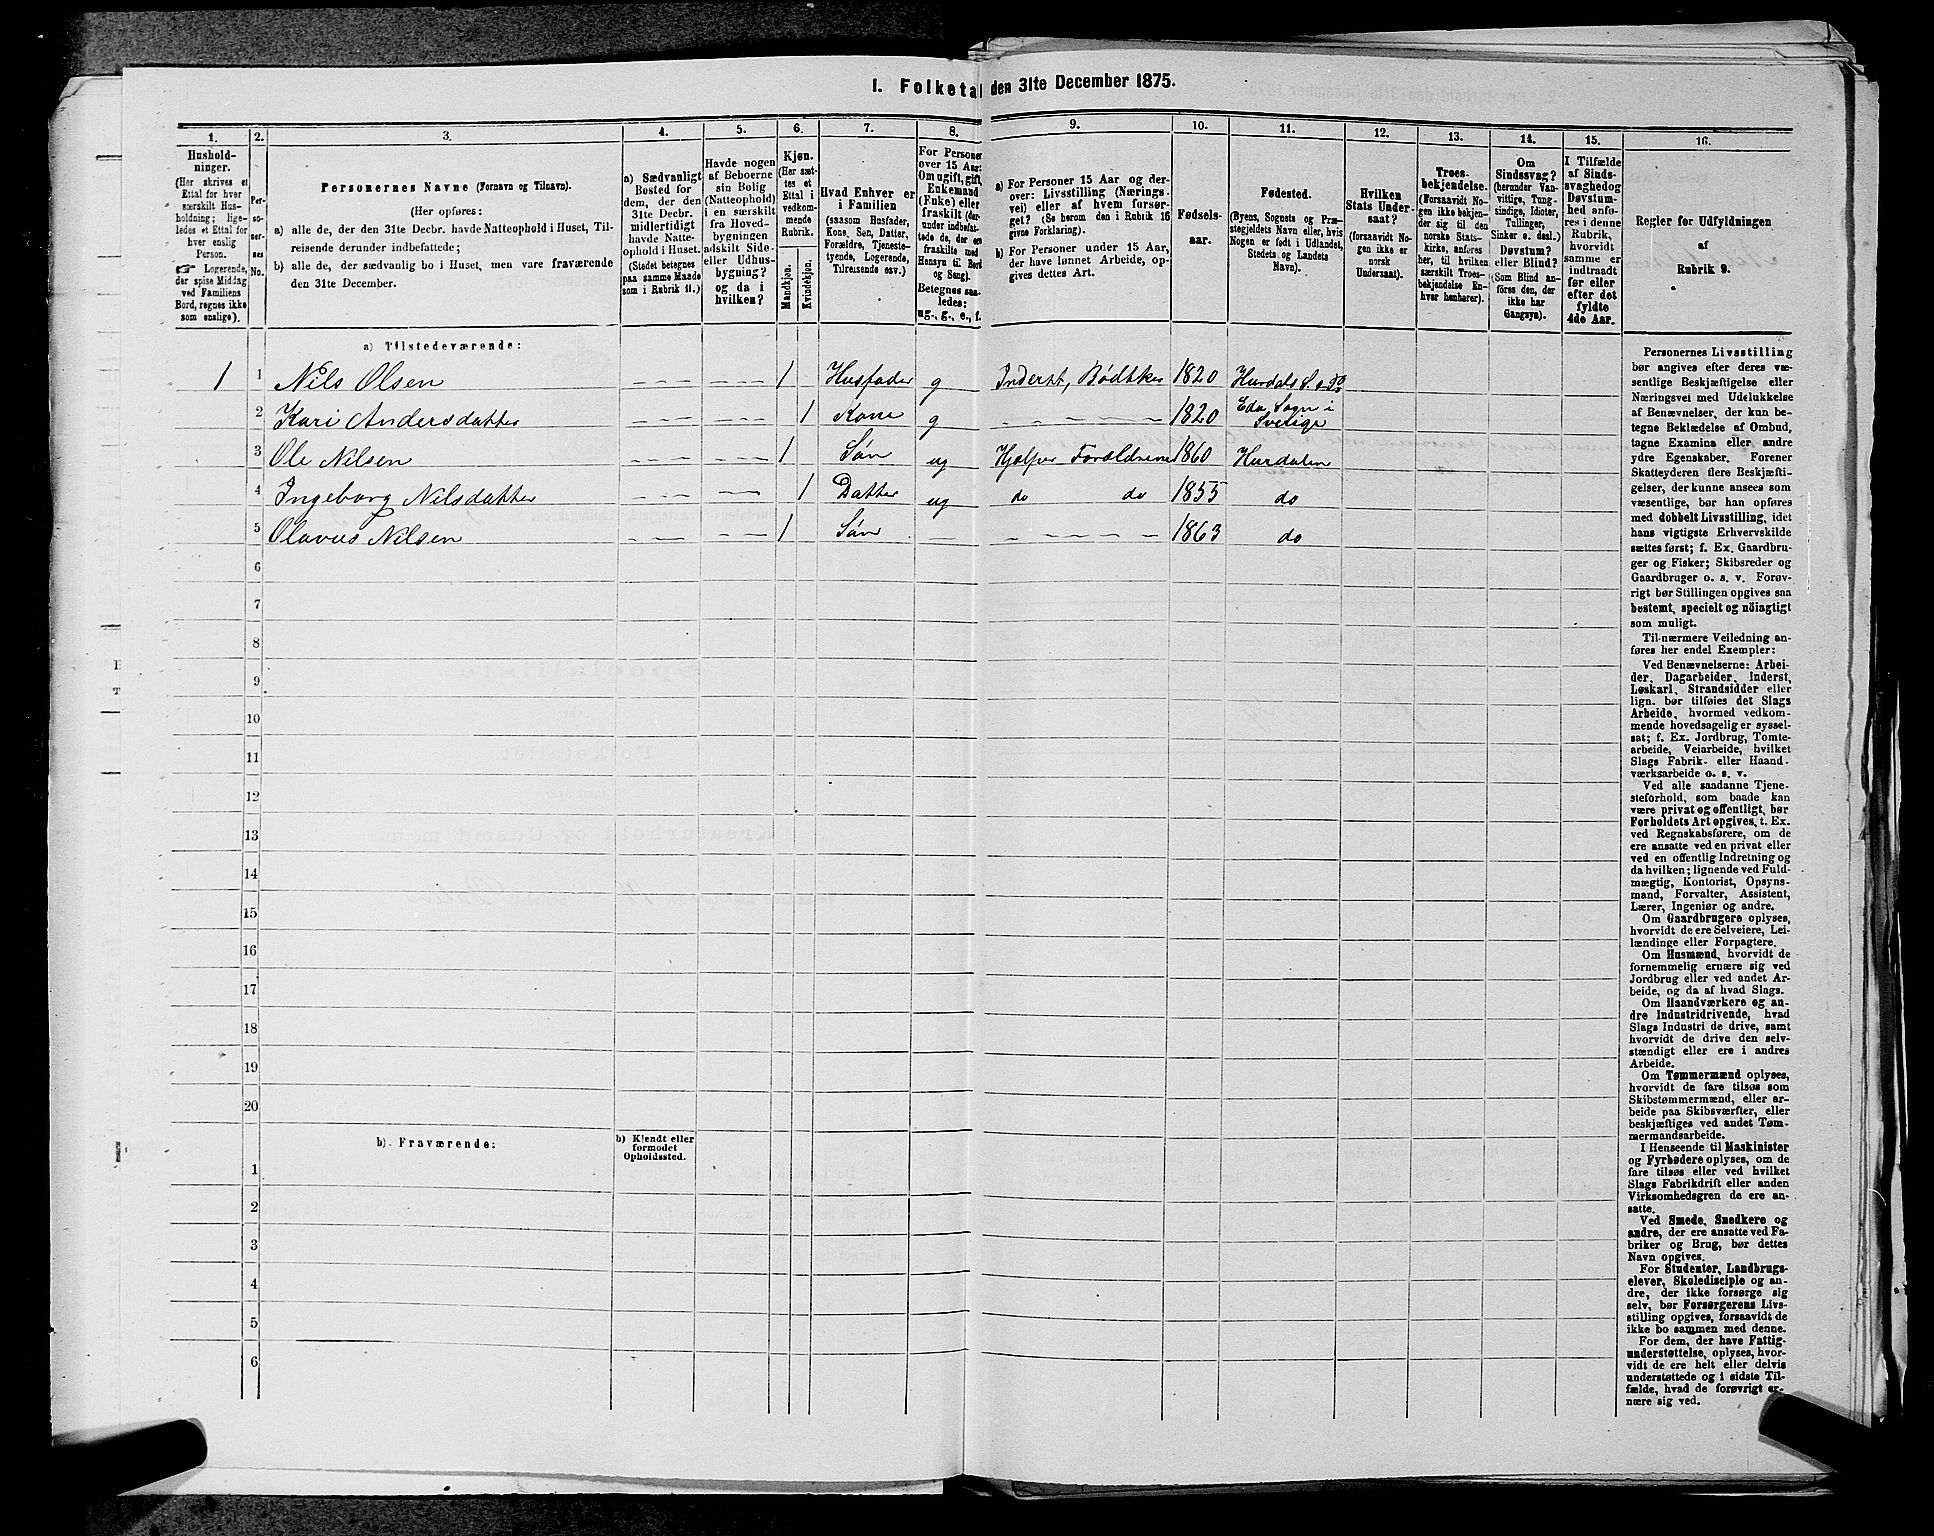 1. Folketal den 31te December 1875.
1.
2.
3.
4.
5.
6.
7.
8.
9.
10.
11.
12.
13.
14.
15.
16.
Husholdninger.
(Her skrives et
Ettal for hver
særskilt Husholdning; ligeledes
et Ettal for
hver enslig
Person.
☞ Logerende,
der spise Middag
ved Familiens
Bord, regnes ikke
som enslige).
Personernes
No.
Personernes Navne (Fornavn og Tilnavn).
(Her opføres:
a) alle de, der den 31te Decbr. havde Natteophold i Huset, Tilreisende
derunder indbefattede;
b) alle de, der sædvanlig bo i Huset, men vare fraværende
den 31te December.
a) Sædvanligt
Bosted for
dem, der den
31te Decbr.
midlertidigt
havde Natteophold
i Huset.
(Stedet betegnes
paa samme Maade
som i Rubrik 11.)
Havde nogen
af Beboerne
sin Bolig
(Natteophold)
i en særskilt
fra Hovedbygningen
adskilt Side-
eller Udhusbygning?
og da i
hvilken?
Kjøn.
(Her sættes
et
Ettal i
vedkommende
Rubrik.
Mandkjøn.
Kvindekjøn.
Hvad Enhver er
i Familien
(saasom Husfader,
Kone, Søn, Datter,
Forældre, Tjenestetyende,
Logerende,
Tilreisende osv.)
For Personer
over 15 Aar:
Om ugift, gift,
Enkemand
(Enke) eller
fraskilt
Betegnes saaledes:
ug., g., e., f.
a) For Personer 15 Aar og derover:
Livsstilling (Næringsvei)
eller af hvem forsørget?
(Se herom den i Rubrik 16
givne Forklaring).
b) For Personer under 15 Aar,
der have lønnet Arbeide, opgives
dettes Art.
Fødselsaar.
Fødested.
(Byens, Sognets og Præstegjeldets
Navn eller, hvis
Nogen er født i Udlandet,
Stedets og Landets
Navn).
Hvilken
Stats Undersaat?
(forsaavidt Nogen
ikke er
norsk
Undersaat).
Troesbekjendelse.
(Forsaavidt Nogen
ikke bekjender
sig til den
norske Statskirke,
anføres
her, til hvilken
særskilt Troesbekjendelse
Enhver
henhører).
Om
Sindssvag?
(herunder Vanvittige,
Tungsindige,
Idioter,
Tullinger,
Sinker o. desl.)
Døvstum?
eller Blind?
(Som Blind anføres
den, der
ikke har
Gangsyn).
I Tilfælde
af Sindssvaghed
og
Døvstumhed
anføres
i denne
Rubrik,
hvorvidt
samme er
indtraadt
før eller
efter det
fyldte
4de Aar.
Regler for Udfyldningen
af
Rubrik 9.
a) Tilstedeværende:
1 1 Nils Olsen 1 Husfader g Inderst, Bødtker 1820 Hurdals
2 Kari Andersdatter 1 Kone g 1820 Eda Sogn i Sverige
3 Ole Nilsen 1 Søn ug Hjælper Forældrene 1860 Hurdalen
4 Ingeborg Nilsdatter 1 Datter ug do do 1855 do
5 Olavus Nilsen 1 Søn 1863 do
6
7
8
9
10
11
12
13
14
15
16
17
18
19
20
b) Fraværende:
b) Kjendt eller
formodet
Opholdssted.
1
2
3
4
5
6
Personernes Livsstilling
bør angives efter deres væsentlige
Beskjæftigelse eller
Næringsvei med Udelukkelse
af Benævnelser, der kun betegne
Beklædelse af Ombud,
tagne Examina eller andre
ydre Egenskaber. Forener
Skatteyderen flere Beskjæftigelser,
der kunne ansees som
væsentlige, bør han opføres
med dobbelt Livsstilling, idet
hans vigtigste Erhvervskilde
sættes først; f. Ex. Gaardbruger
og Fisker; Skibsreder og
Gaardbruger o. s. v. Forøvrigt
bør Stillingen opgives saa
bestemt, specielt og nöiagtigt
som muligt.
Til nærmere Veiledning anføres
her endel Exempler:
Ved Benævnelserne: Arbeider,
Dagarbeider, Inderst,
Løskarl, Strandsidder eller
lign. bør tilføies det Slags
Arbeide, hvormed vedkommende
hovedsagelig er sysselsat;
f. Ex. Jordbrug, Tomtearbeide,
Veiarbeide, hvilket
Slags Fabrik- eller Haandværksarbeide
o. s. v.
Ved alle saadanne Tjenesteforhold,
som baade kan
være privat og offentligt, bør
Forholdets Art opgives, t. Ex.
ved Regnskabsførere, om de
ere ansatte ved en privat eller
ved en offentlig Indretning og
da hvilken; lignende ved Fuldmægtig,
Kontorist, Opsynsmand,
Forvalter, Assistent,
Lærer, Ingeniør og andre.
Om Gaardbrugere oplyses,
hvorvidt de ere Selveiere, Leilændinge
eller Forpagtere.
Om Husmænd, hvorvidt de
fornemmelig ernære sig ved
Jordbrug eller ved andet Arbeide,
og da af hvad Slags.
Om Haandværkere og andre
Industridrivende, hvad
Slags Industri de drive, samt
hvorvidt de drive den selvstændigt
eller ere i andres
Arbeide.
Om Tømmermænd oplyses,
hvorvidt de fare tilsøs som
Skibstømmermænd, eller arbeide
paa Skibsværfter, eller
beskjæftiges ved andet Tømmermandsarbeide.
I Henseende til Maskinister
og Fyrbødere oplyses, om de
fare tilsøs eller ved hvilket
Slags Fabrikdrift eller anden
Virksomhedsgren de ere ansatte.
Ved Smede, Snedkere og
andre, der ere ansatte ved Fabriker
og Brug, bør dettes
Navn opgives.
For Studenter, Landbrugselever,
Skoledisciple og andre,
der ikke forsørge sig
selv, bør Forsørgerens Livsstilling
opgives, forsaavidt de
ikke bo sammen med denne.
For dem, der have Fattigunderstøttelse,
oplyses, hvorvidt
de ere helt eller delvis
understøttede og i sidste Tilfælde,
hvad de forøvrigt ernære
sig ved.